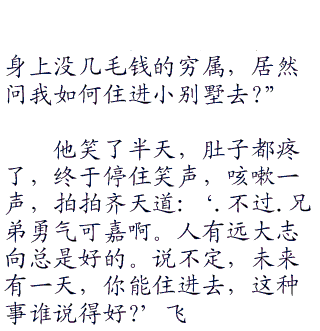 身上没几毛钱的穷属，居然
问我如何住进小别墅去？”
他笑了半天，肚子都疼
了，终于停住笑声，咳嗽一
声，拍拍齐天道：‘.不过.兄
弟勇气可嘉啊。人有远大志
向总是好的。说不定，未来
有一天，你能住进去，这种
事谁说得好？’飞